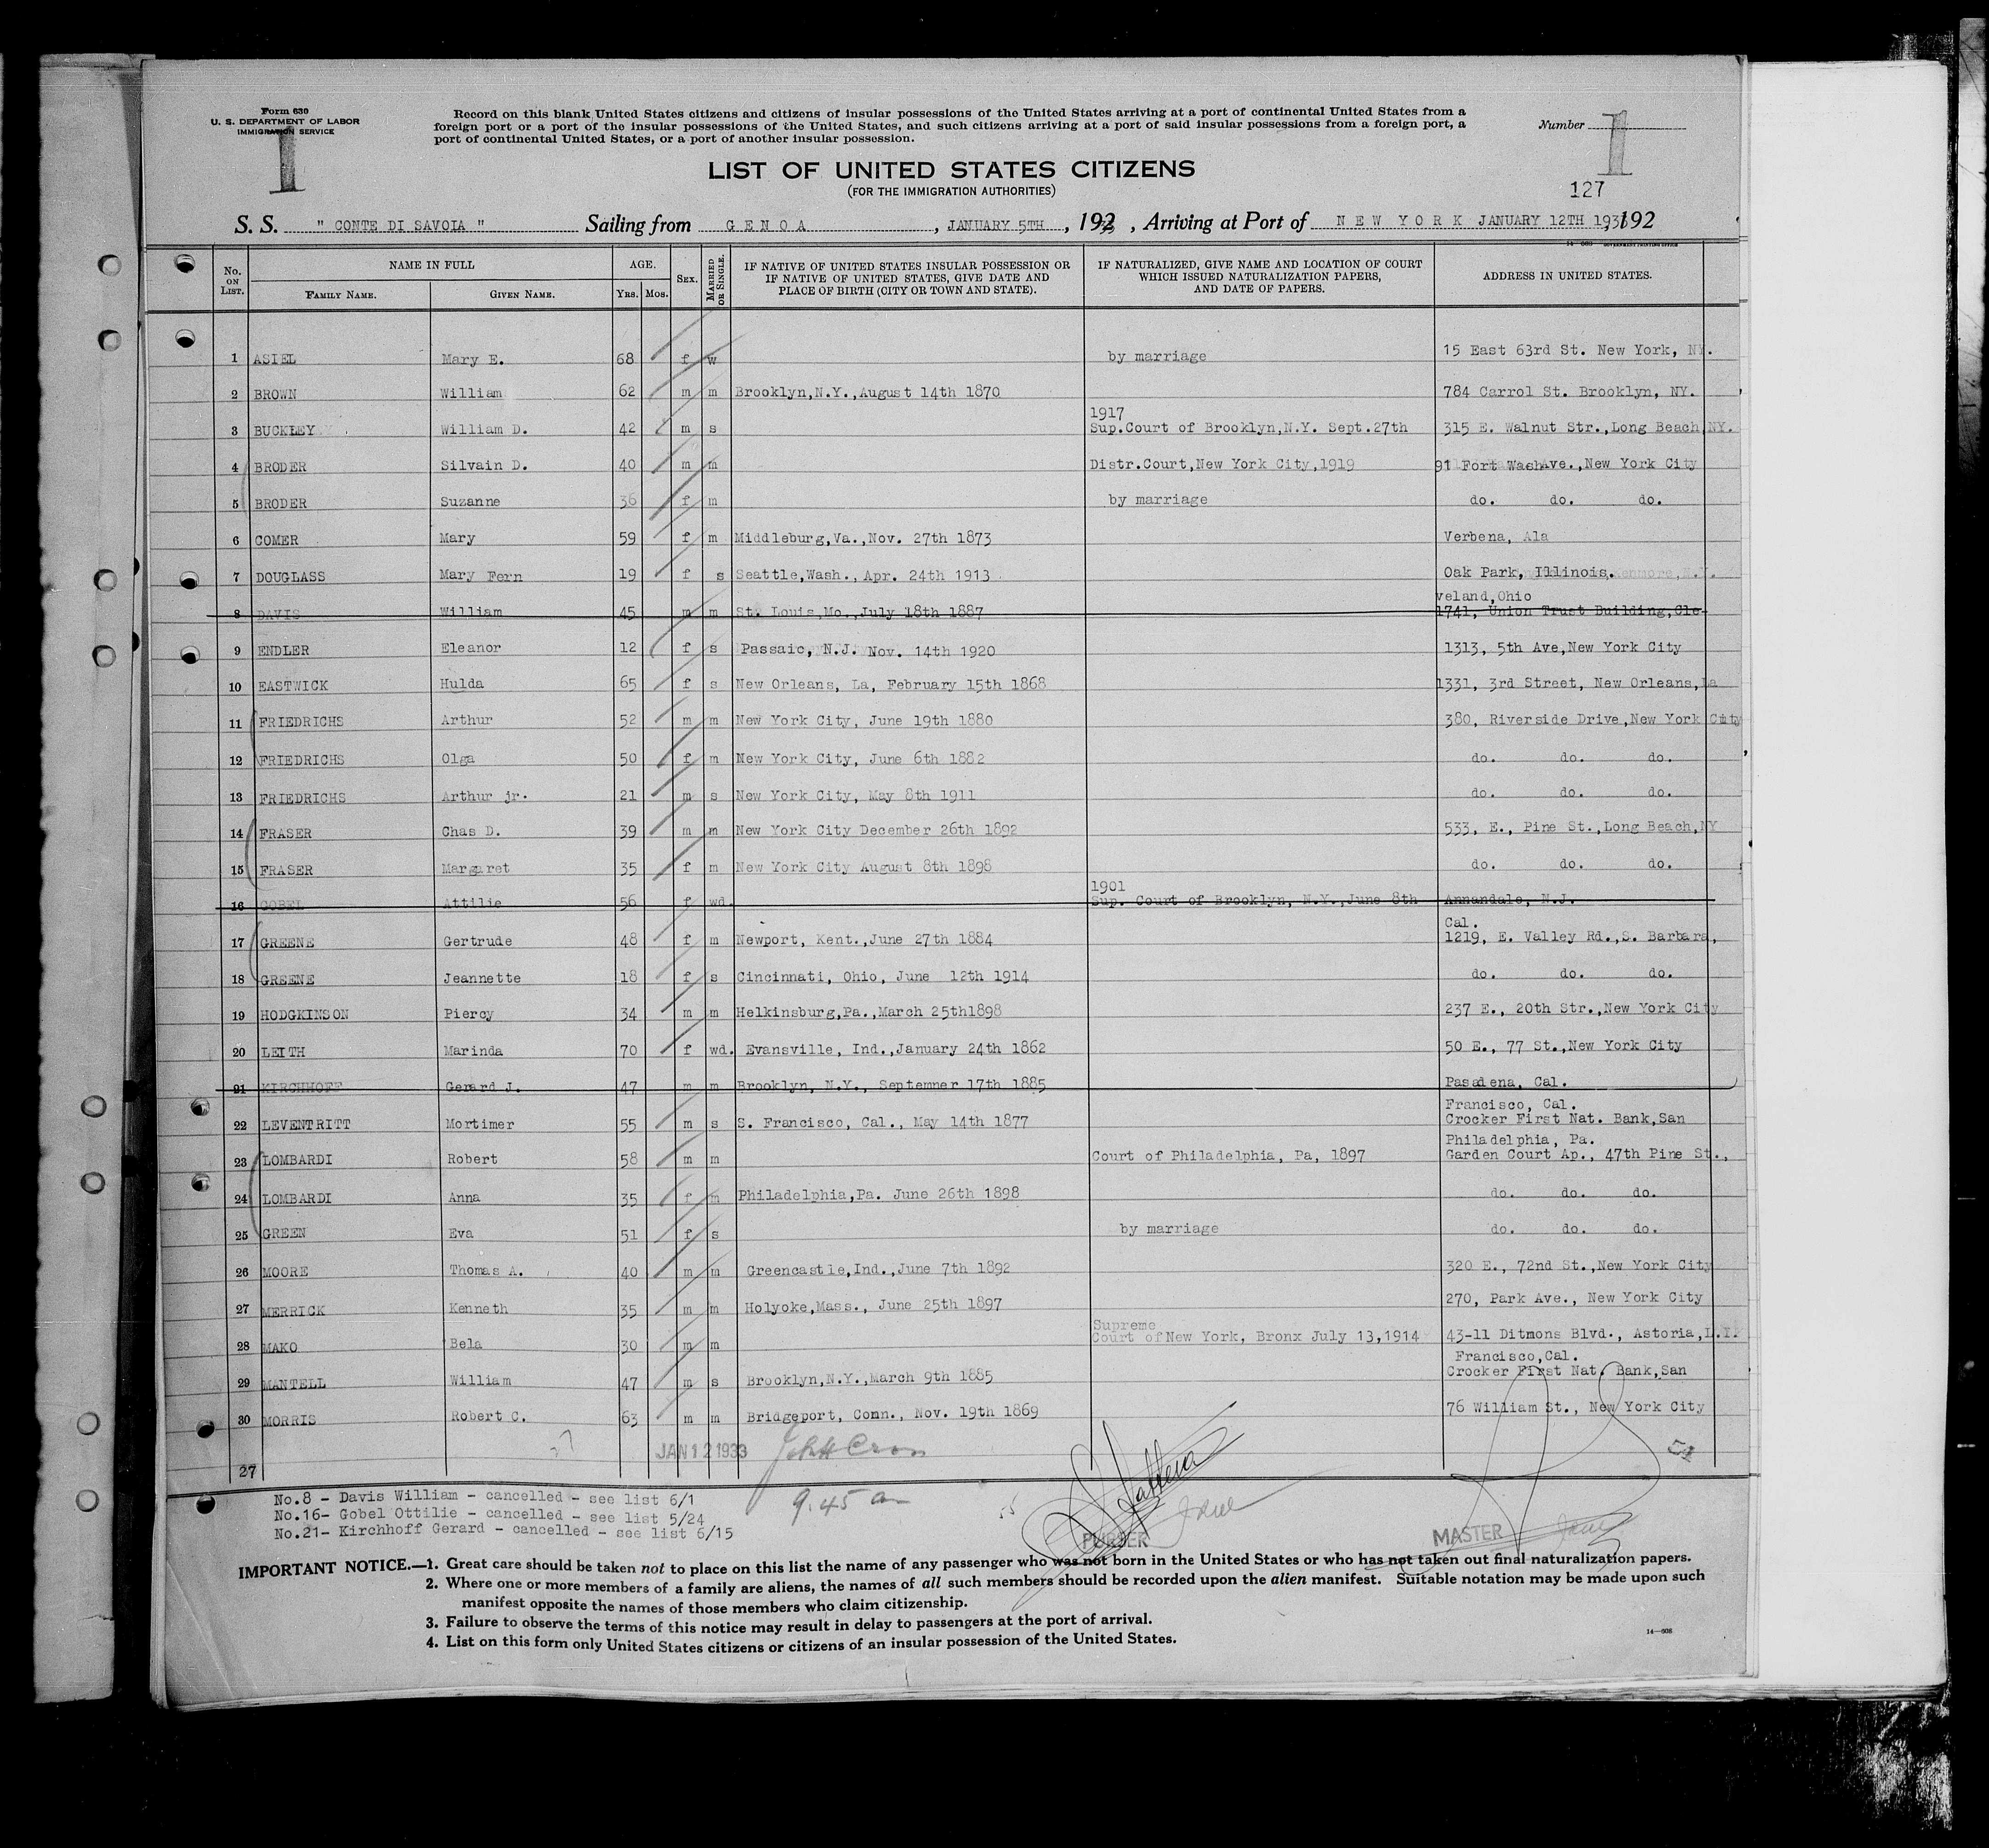 Form 630
U. S. DEPARTMENT OF LABOR
IMMIGRATION SERVICE
1
Record on this blank United States citizens and citizens of insular possessions of the United States arriving at a port of continental United States from a
foreign port or a port of the insular possessions of the United States, and such citizens arriving at a port of said insular possessions from a foreign port, a
port of continental United States, or a port of another insular possession.
Number 1
LIST OF UNITED STATES CITIZENS
(FOR THE IMMIGRATION AUTHORITIES)
127
S. S. " CONTE DI SAVOIA " Sailing from GENOA, JANUARY 5TH, 1933, Arriving at Port of NEW YORK JANUARY 12TH 1933, 192
No. ON LIST. NAME IN FULL AGE. SEX. MARRIED OR SINGLE. IF NATIVE OF UNITED STATES INSULAR POSSESSION OR IF NATIVE OF UNITED STATES, GIVE DATE AND PLACE OF BIRTH (CITY OR TOWN AND STATE). IF NATURALIZED, GIVE NAME AND LOCATION OF COURT WHICH ISSUED NATURALIZATION PAPERS, AND DATE OF PAPERS. ADDRESS IN UNITED STATES.
FAMILY NAME. GIVEN NAME. YRS. MOS.
1 ASIEL Mary E. 68 f w by marriage 15 East 63rd St. New York, NY.
2 BROWN William 62 m m Brooklyn,N.Y.,August 14th 1870 784 Carrol St. Brooklyn, NY.
1917
3 BUCKLEY William D. 42 m s Sup.Court of Brooklyn,N.Y. Sept.27th 315 E. Walnut Str.,Long Beach,NY.
4 BRODER Silvain D. 40 m m Distr.Court,New York City,1919 91 Fort WashAve.,New York City
5 BRODER Suzanne 36 f m by marriage do. do. do.
6 COMER Mary 59 f m Middleburg,Va.,Nov. 27th 1873 Verbena, Ala
7 DOUGLASS Mary Fern 19 f s Seattle,Wash., Apr. 24th 1913 Oak Park, Illinois.
veland,Ohio
8 DAVIS William 45 m m St. Louis,Mo.,July 18th 1887 1741, Union Trust Building,Cle-
9 ENDLER Eleanor 12 f s Passaic, N.J. Nov. 14th 1920 1313, 5th Ave,New York City
10 EASTWICK Hulda 65 f s New Orleans, La, February 15th 1868 1331, 3rd Street, New Orleans,La
11 FRIEDRICHS Arthur 52 m m New York City, June 19th 1880 380, Riverside Drive,New York City
12 FRIEDRICHS Olga 50 f m New York City, June 6th 1882 do. do. do.
13 FRIEDRICHS Arthur jr. 21 m s New York City, May 8th 1911 do. do. do.
14 FRASER Chas D. 39 m m New York City December 26th 1892 533, E., Pine St.,Long Beach,NY
15 FRASER Margaret 35 f m New York City August 8th 1898 do. do. do.
1901
16 GOBEL Attilie 56 f wd. Sup. Court of Brooklyn, N.Y.,June 8th Annandale, N.J.
Cal.
17 GREENE Gertrude 48 f m Newport, Kent.,June 27th 1884 1219, E. Valley Rd.,S. Barbara,
18 GREENE Jeannette 18 f s Cincinnati, Ohio, June 12th 1914 do. do. do.
19 HODGKINSON Piercy 34 m m Helkinsburg,Pa.,March 25th1898 237 E., 20th Str.,New York City
20 LEITH Marinda 70 f wd. Evansville, Ind.,January 24th 1862 50 E., 77 St.,New York City
21 KIRCHHOFF Gerard J. 47 m m Brooklyn, N.Y., Septemner 17th 1885 Pasadena, Cal.
Francisco, Cal.
22 LEVENTRITT Mortimer 55 m s S. Francisco, Cal., May 14th 1877 Crocker First Nat. Bank,San
Philadelphia, Pa.
23 LOMBARDI Robert 58 m m Court of Philadelphia, Pa, 1897 Garden Court Ap., 47th Pine St.,
24 LOMBARDI Anna 35 f m Philadelphia,Pa. June 26th 1898 do. do. do.
25 GREEN Eva 51 f s by marriage do. do. do.
26 MOORE Thomas A. 40 m m Greencastle,Ind.,June 7th 1892 320 E., 72nd St.,New York City
27 MERRICK Kenneth 35 m m Holyoke,Mass., June 25th 1897 270, Park Ave., New York City
Supreme
28 MAKO Bela 30 m m Court of New York, Bronx July 13,1914 43-11 Ditmons Blvd., Astoria,L.I.
Francisco,Cal.
29 MANTELL William 47 m s Brooklyn,N.Y.,March 9th 1885 Crocker First Nat. Bank,San
30 MORRIS Robert C. 63 m m Bridgeport, Conn., Nov. 19th 1869 76 William St., New York City
27 JAN 12 1933
27
No.8 - Davis William - cancelled - see list 6/1
No.16- Gobel Ottilie - cancelled - see list 5/24
No.21- Kirchhoff Gerard - cancelled - see list 6/15
9.45 am
PURSER
MASTER
IMPORTANT NOTICE.—1. Great care should be taken not to place on this list the name of any passenger who was not born in the United States or who has not taken out final naturalization papers.
2. Where one or more members of a family are aliens, the names of all such members should be recorded upon the alien manifest. Suitable notation may be made upon such
manifest opposite the names of those members who claim citizenship.
3. Failure to observe the terms of this notice may result in delay to passengers at the port of arrival.
4. List on this form only United States citizens or citizens of an insular possession of the United States.
14—608